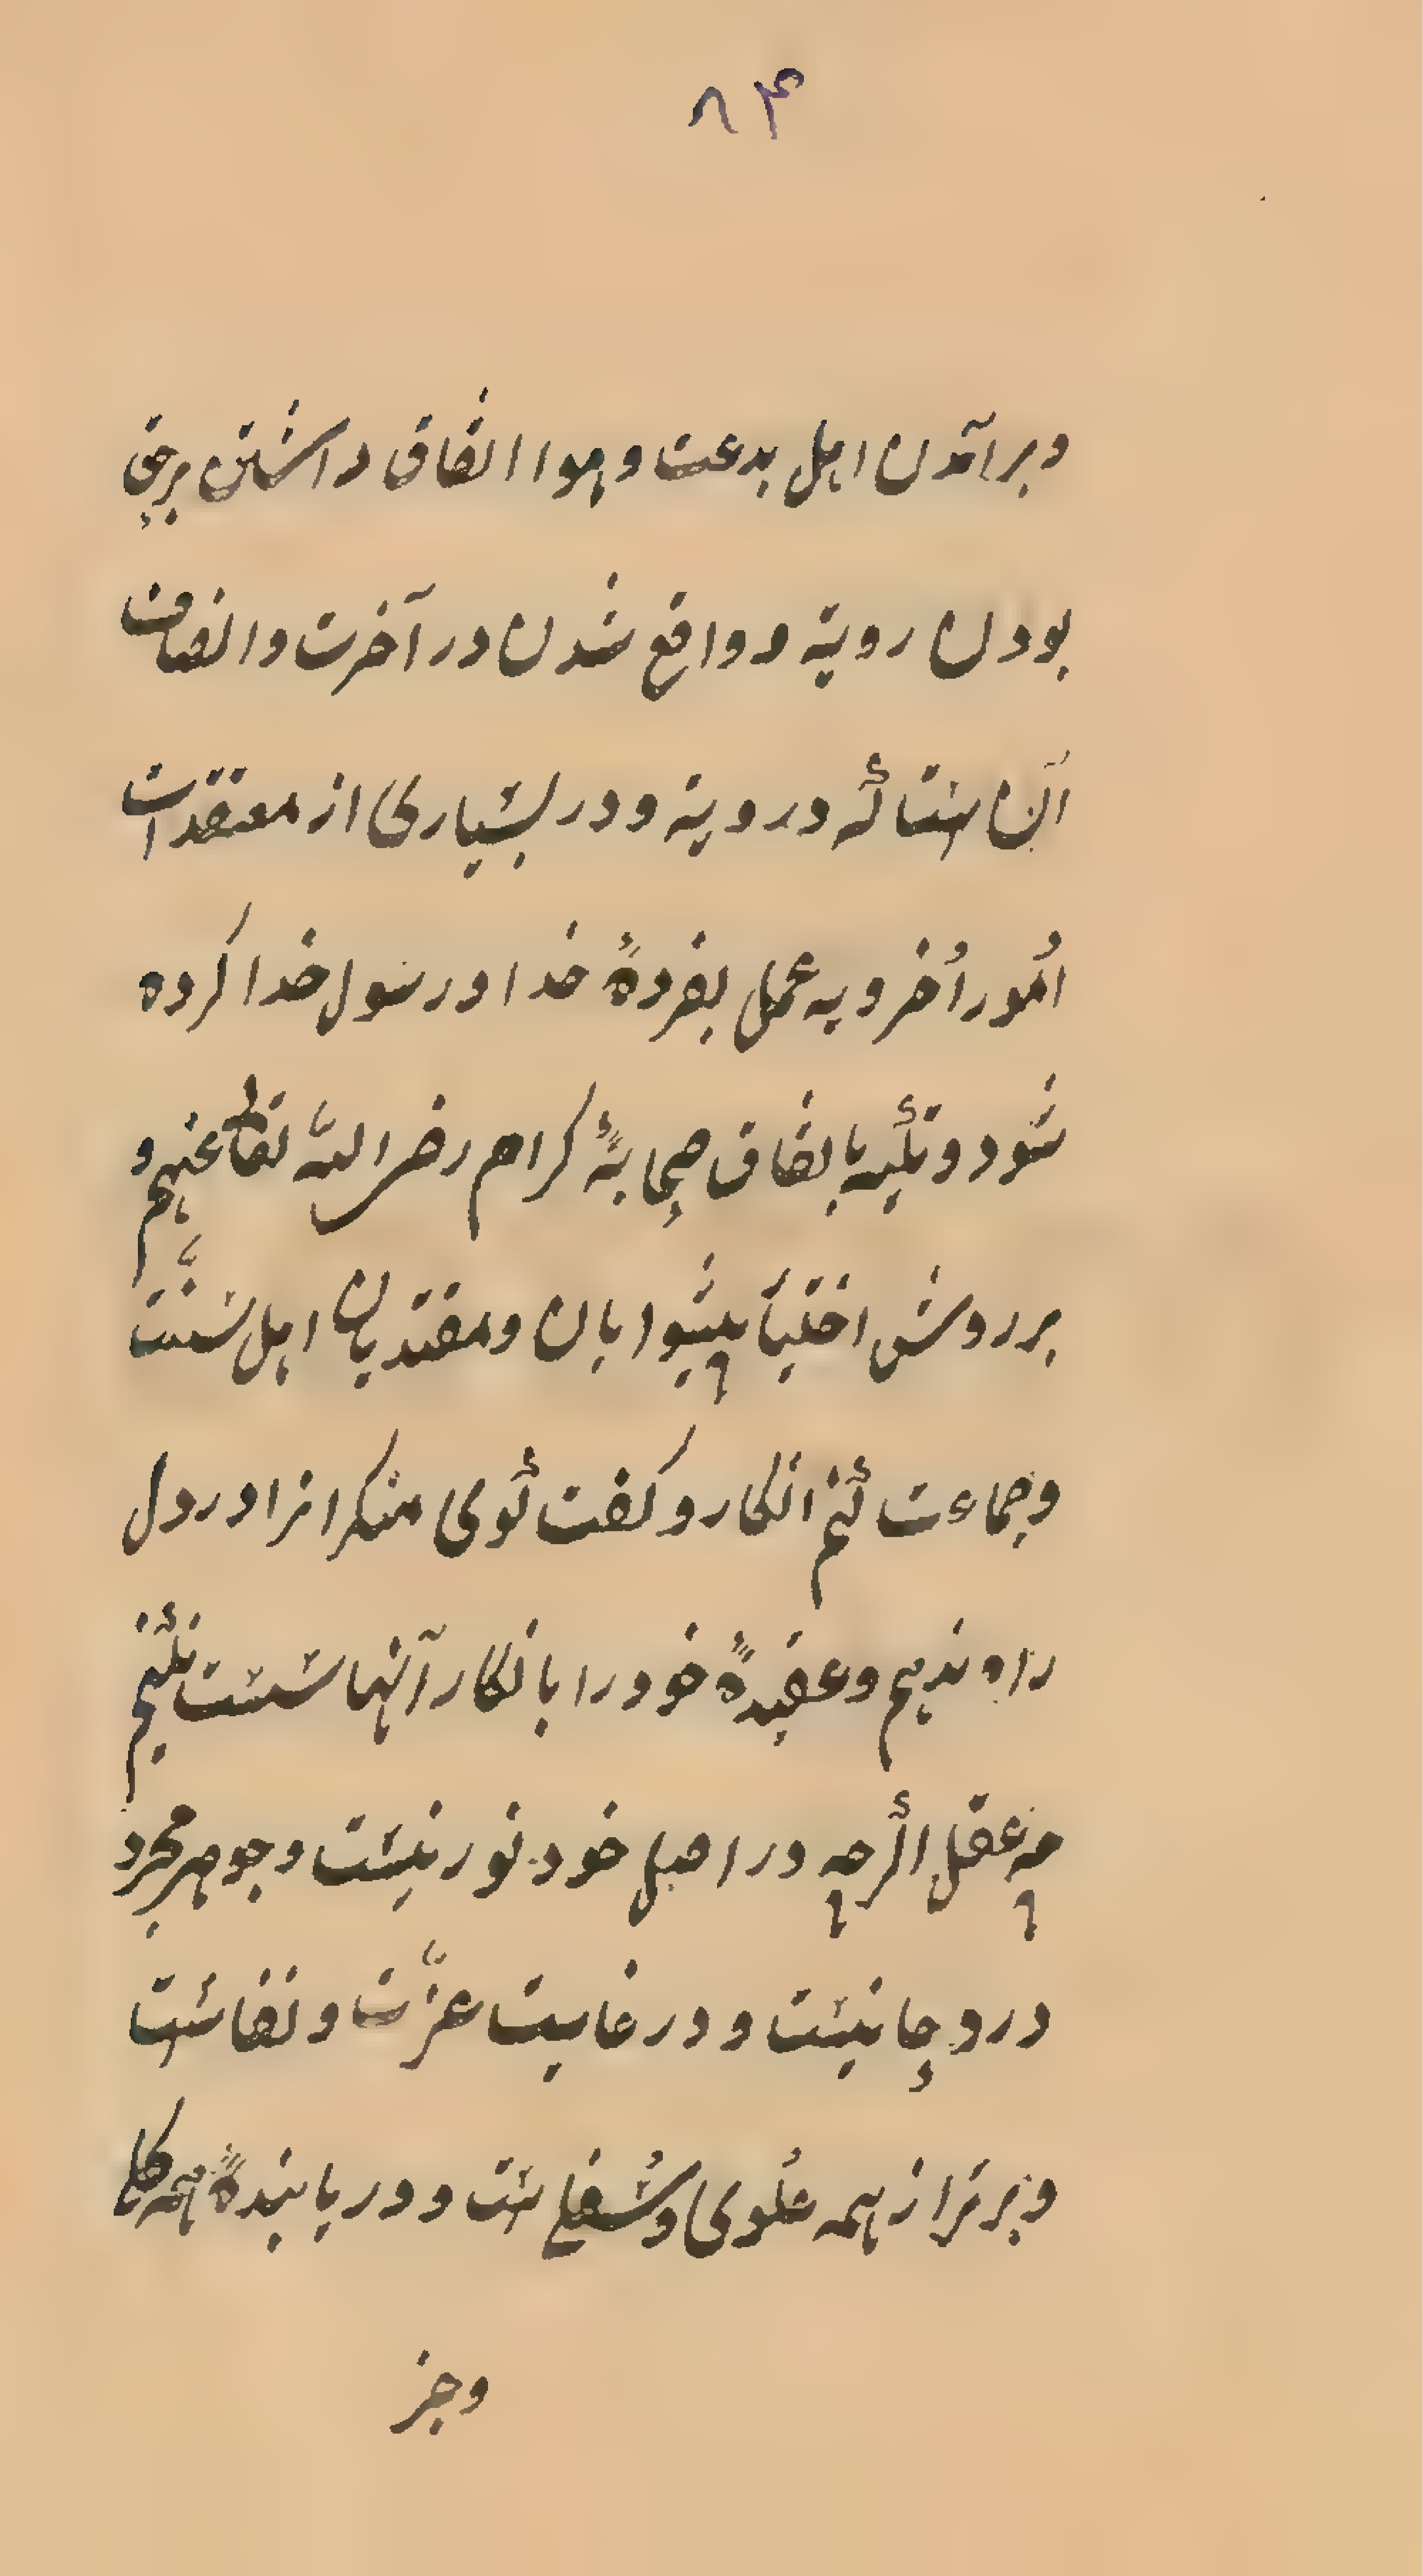 ۸۴
و برآمدن اهل بدعت و هوا اتفاق داشتن بر حق
بودن رویة و واقع شدن در آخرت و انصاف
آن است که در رویة و در بسیاری از معتقدات
اُمور اُخرویه عمل بفرمودهٔ خدا و رسول خدا کرده
شود و تکیه باتفاق صحابهٔ کرام رضی الله تعالی عنهم و
بر روش اختیار پیشوایان و مقتدیان اهل سنّت
و جماعت کنم انکار و گفت گوی منکرانرا در دل
راه ندهم و عقیدهٔ خود را بانکار آنها سست نکنم
چه عقل اگرچه در اصل خود نوریست و جوهر مجرد
در روحانیست و در غایت عزّت و نفاست
و برتر از همه عُلوی و سُفلی ست و دریابندهٔ همه کلی
و جز